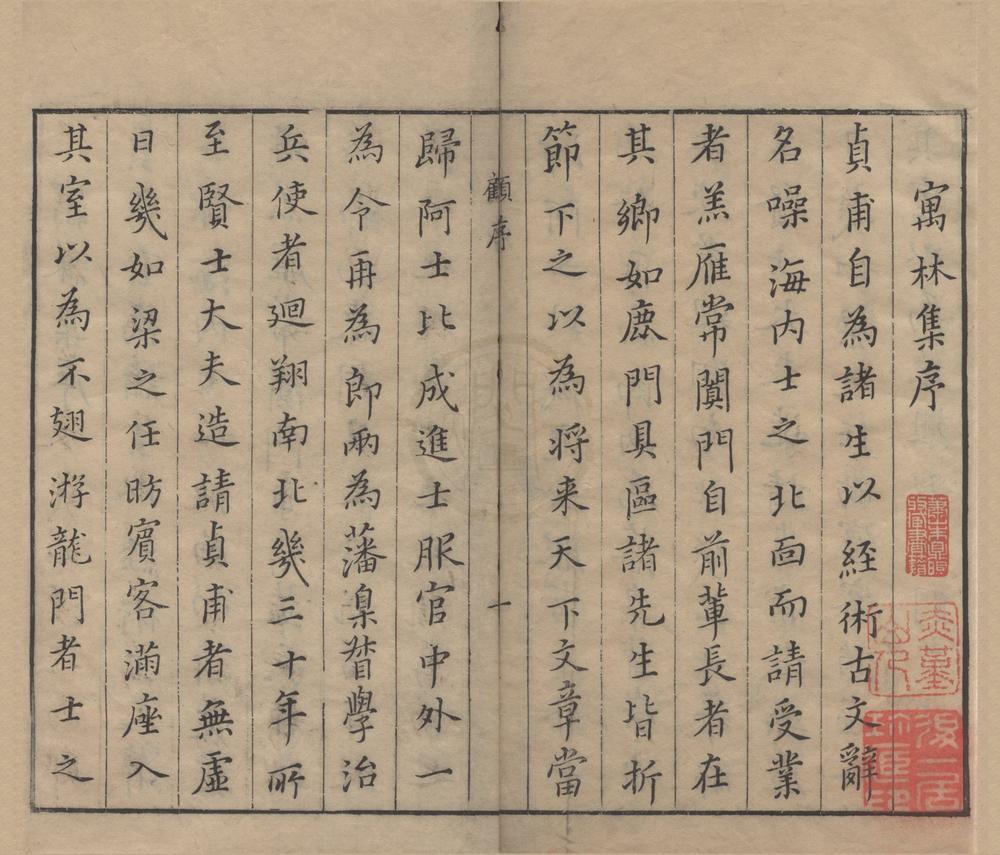 寓林集序
貞甫自為諸生以經術古文辭
名噪海内士之北靣而請受業
者羔雁常闐門自前輩長者在
其鄉如鹿門具區諸先生皆折
節下之以為將来天下文章當
顧序
一
歸阿士比成進士服官中外一
為令再為郎兩為藩臬督學治
兵使者迴翔南北幾三十年所
至賢士大夫造請貞甫者無虛
日幾如梁之任昉賓客滿座入
其室以為不翅游龍門者士之